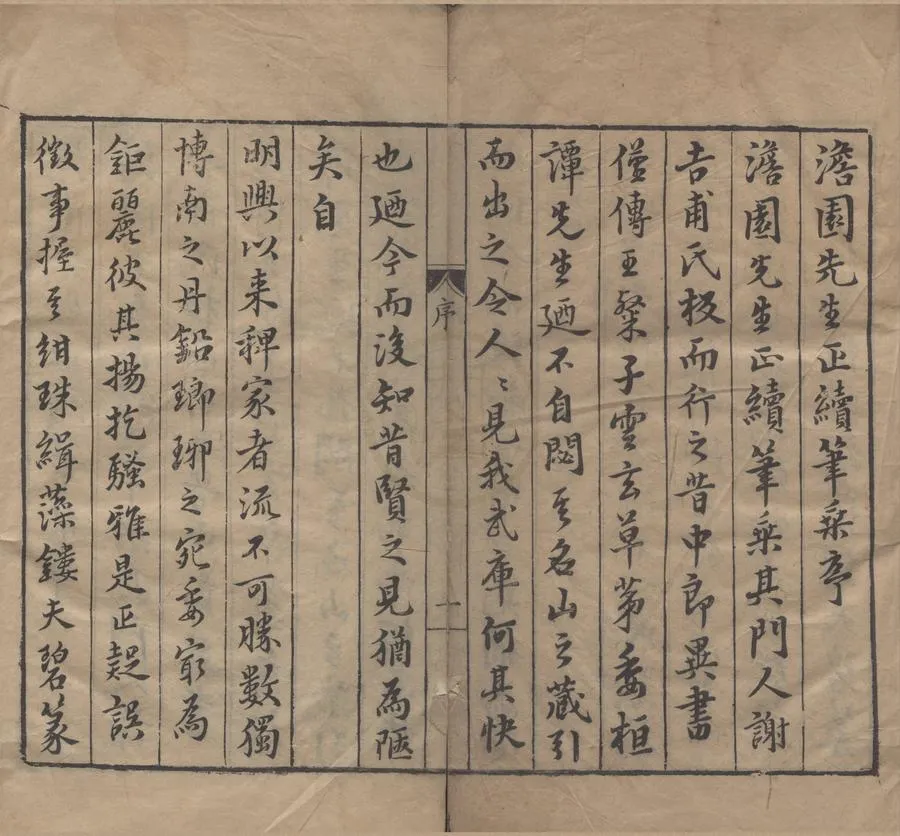 澹園先生正續筆乗序
澹園先生正續筆乗其門人謝
吉甫氏板而行之昔中郎異書
僅傳王粲子雲玄草苐委桓
譚先生廼不自閟其名山之藏引
而出之令人〻見我武庫何其快
序
一
也廼今而後知昔賢之見猶為陋
矣自
明興以来稗家者流不可勝數獨
博南之丹鉛瑯琊之宛委窮為
鉅麗彼其揚扢騷雅是正疑誤
徵事握其紺珠緝藻鏤夫碧篆